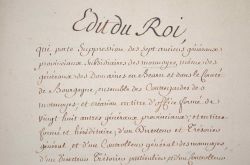 Edit du Roi
Qui porte Suppression des sept anciens généraux
provinciaux Subsidiaires des monnoyes, même des
généraux des Domaines en Bearn et dans le Comté
de Bourgogne, ensemble des Contregardes de
monnoyes, et création en titre d'office formé de
Vingt huit autres généraux provinciaux, et en titre
formé et hereditaire d'un Directeur et Trésorier
général, et d'un Controlleur général des monnoyes
d'un Directeur Trésorier particulier et d'un Controlleur